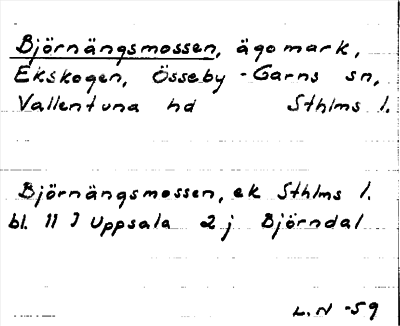 Björnängsmossen, ägomark,
Ekskogen, Össeby-Garns sn,
Vallentuna hd Sthlms l.
Björnängsmossen, ek Sthlms l.
bl. 11 I Uppsala 2 j Björndal
L.N -59